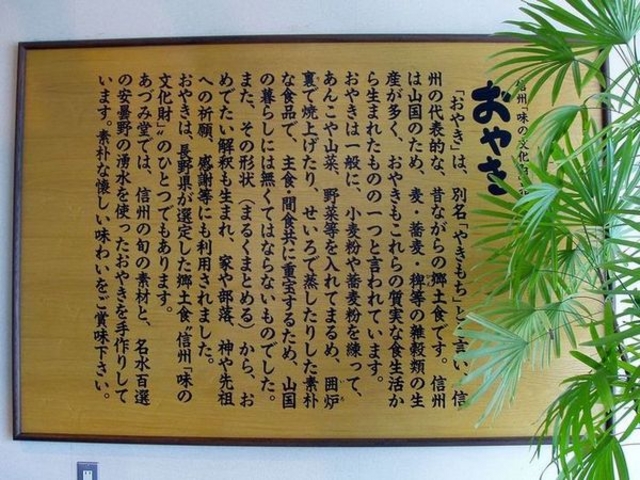 信州「味の文化財」
おやき
「おやき」は、別名「やきもち」とも言い、信
州の代表的な、昔ながらの郷土食です。信州
は山国のため、麦・蕎麦・稗等の雑穀類の生
産が多く、おやきもこれらの質実な食生活か
ら生まれたものの一つと言われています。
おやきは一般に、小麦粉や蕎麦粉を練って、
あんこや山菜、野菜等を入れてまるめ、囲炉
裏で焼上げたり、せいろで蒸したりした素朴
な食品で、主食・間食共に重宝するため、山国
の暮らしには無くてはならないものでした。
また、その形状（まるくまとめる）から、お
めでたい解釈も生まれ、家や部落、神や先祖
への祈願、感謝等にも利用されました。
おやきは、長野県が選定した郷土食〝信州「味の
文化財」〟のひとつでもあります。
あづみ堂では、信州の旬の素材と、名水百選
の安曇野の湧水を使ったおやきを手作りして
います。素朴な懐しい味わいをご賞味下さい。